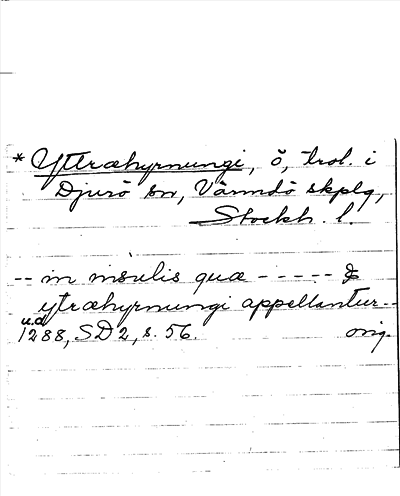 * Yttræhyrnungi, ö, trol. i
Djurö sn, Värmdö skplg,
Stockh. l.
-- in insulis quæ ----- &
ytræhyrnungi appellantur--
u.d.
1288, SD 2, s. 56. orig.